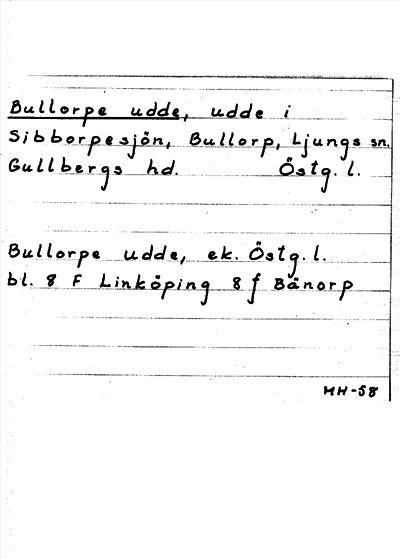 Bullorpe udde, udde i
Sibborpesjön, Bullorp, Ljungs sn.
Gullbergs hd. Östg. l.
Bullorpe udde, ek. Östg. l.
bl. 8 F Linköping 8 f Bänorp
MH-58